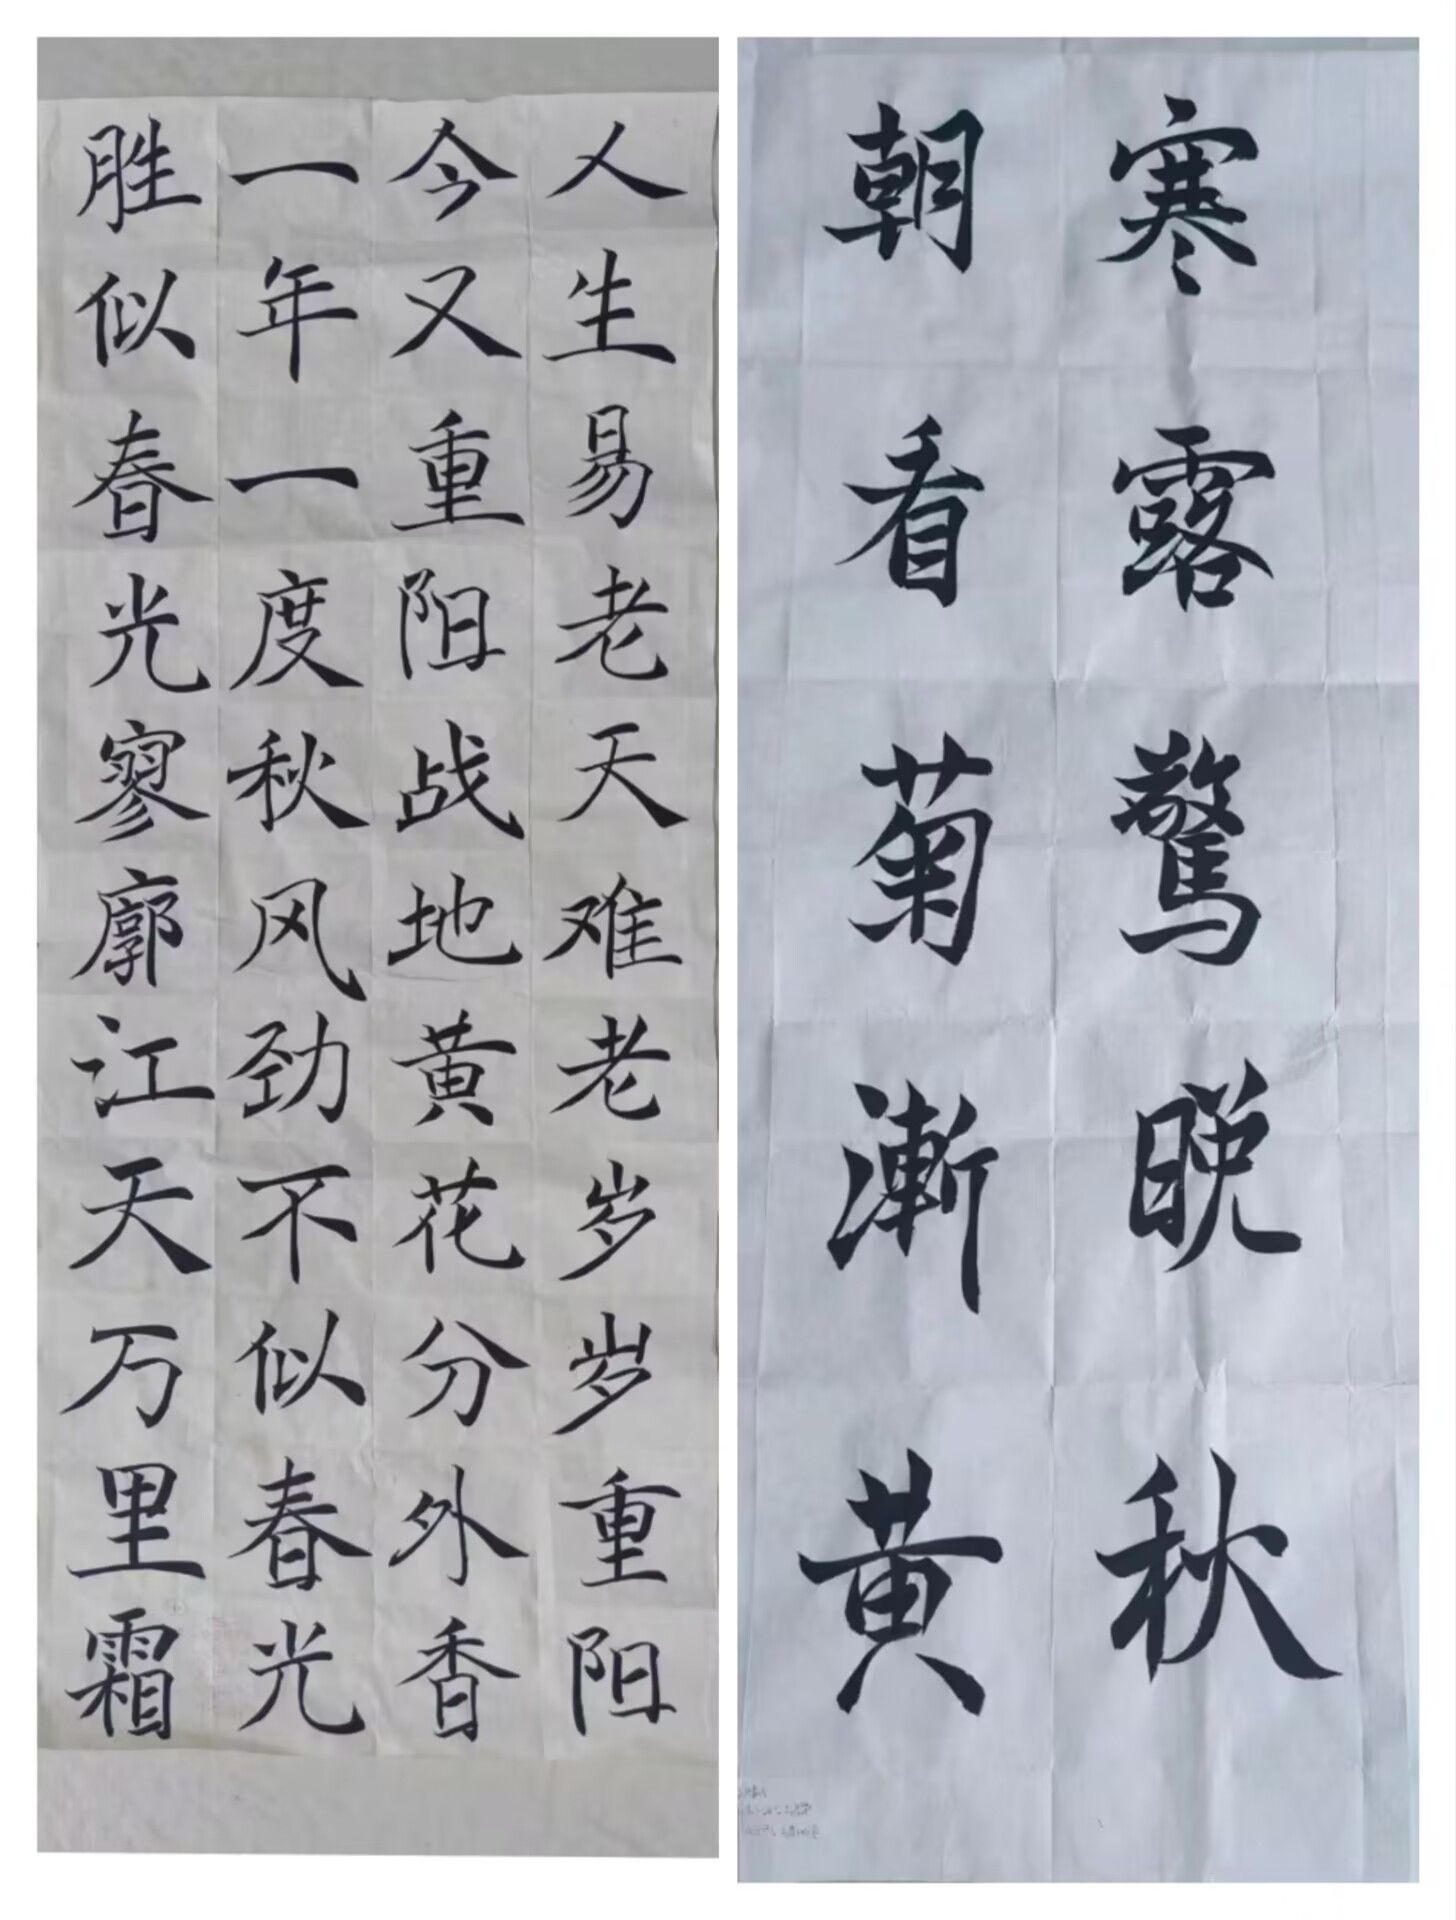 人生易老天难老岁岁重阳
今又重阳战地黄花分外香
一年一度秋风劲不似春光
胜似春光寥廓江天万里霜
寒露惊晚秋
朝看菊渐黄